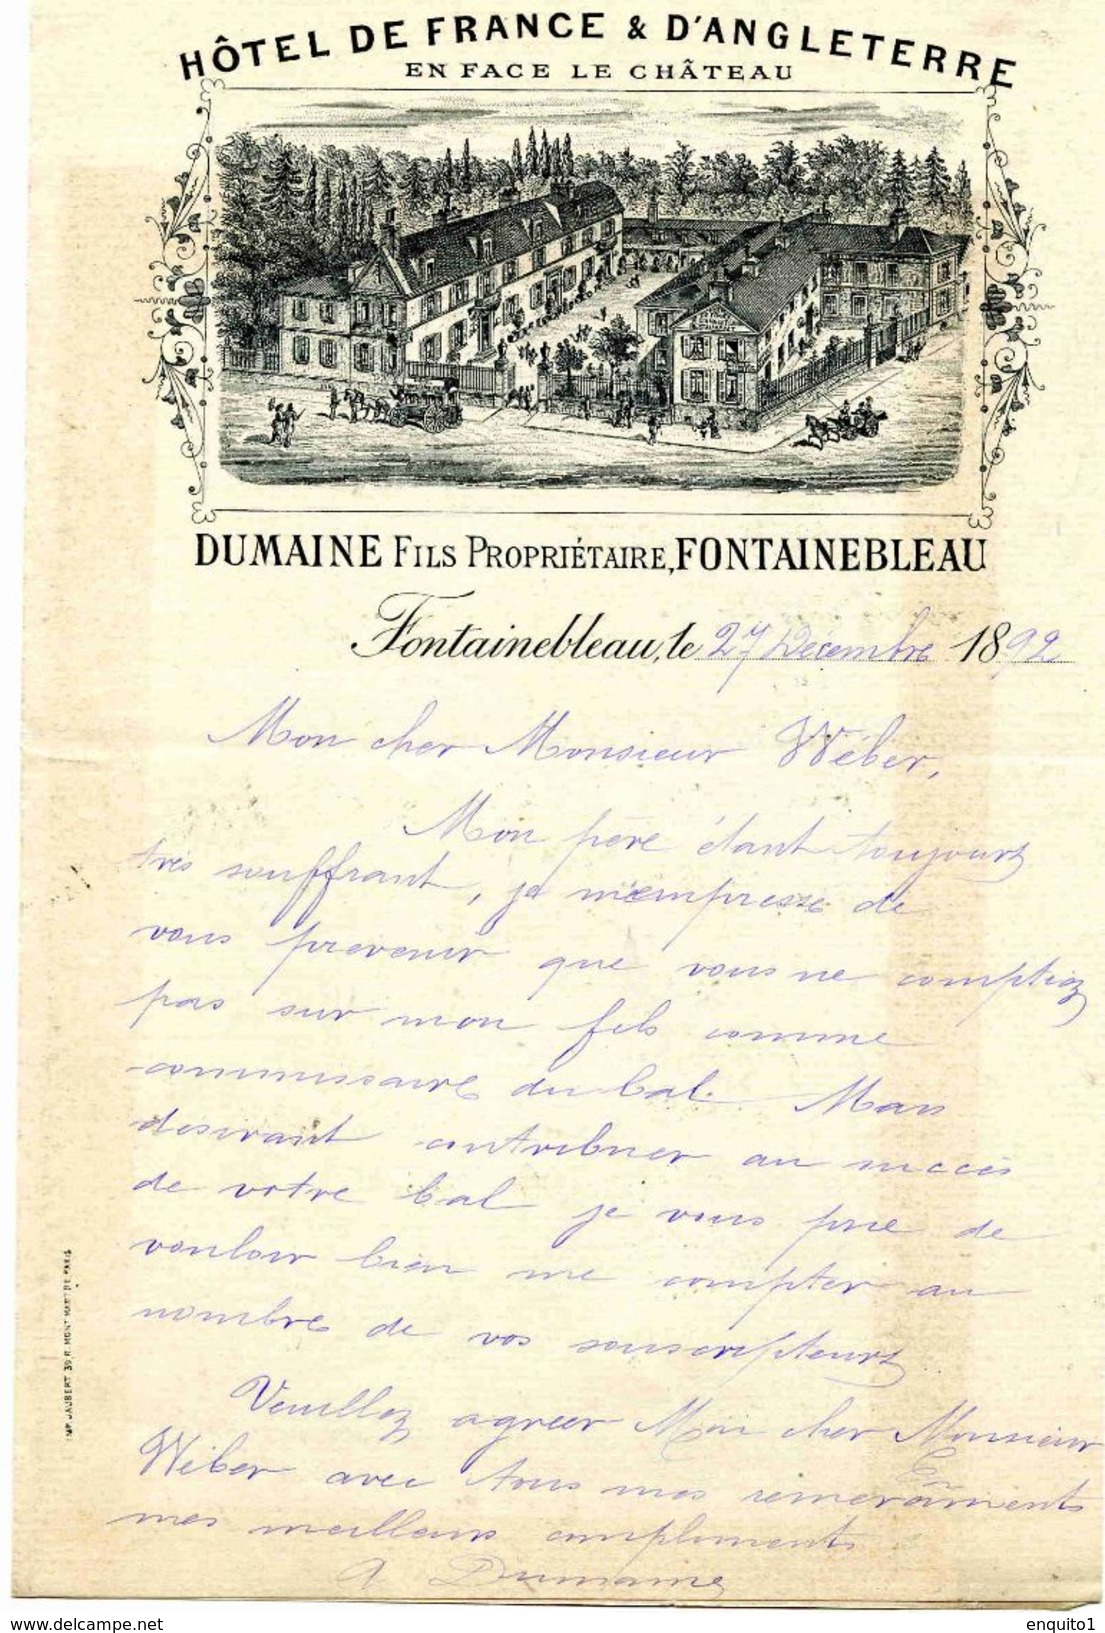 HÔTEL DE FRANCE & D'ANGLETERRE
EN FACE LE CHÂTEAU
DUMAINE FILS PROPRIÉTAIRE, FONTAINEBLEAU
Fontainebleau, le 27 Décembre 1892
Mon cher Monsieur Wéber,
Mon père étant toujours
très souffrant, je m'empresse de
vous prevenir que vous ne comptiez
pas sur mon fils comme
commissaire du bal. Mais
désirant contribuer au succès
de votre bal je vous prie de
vouloir bien me compter au
nombre de vos souscripteurs
Veuillez agréer Mon cher Monsieur
Wéber avec tous mes remerciments
mes meilleurs compliments
A Dumaine
IMP. JAUBERT 39, R. MONTMARTRE PARIS
www.delcampe.net
enquito1